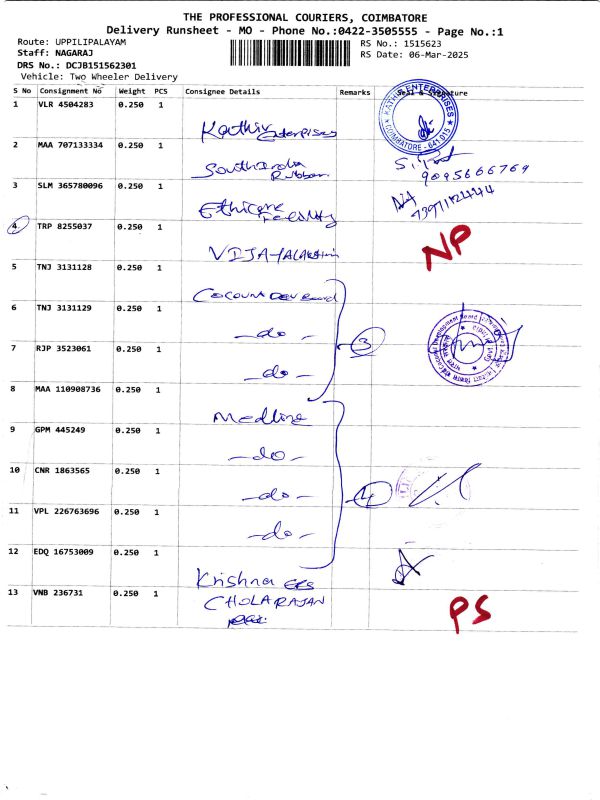 THE PROFESSIONAL COURIERS, COIMBATORE
Delivery Runsheet - MO - Phone No.:0422-3505555 - Page No.:1
Route: UPPILIPALAYAM
RS No.: 1515623
Staff: NAGARAJ
RS Date: 06-Mar-2025
DRS No.: DCJB151562301
Vehicle: Two Wheeler Delivery
S No Consignment No Weight PCS Consignee Details Remarks Seal & Signature
1 VLR 4504283 0.250 1
Kathir Enterprises
KATHIR ENTERPRISES
COIMBATORE - 641 015
2 MAA 707133334 0.250 1
South India
Rubber
9095666769
3 SLM 365780096 0.250 1
Ethicare
Facility
4 TRP 8255037 0.250 1
VIJAYALAKSHMI
NP
5 TNJ 3131128 0.250 1
Coconut Dev Board
6 TNJ 3131129 0.250 1
- do -
3
7 RJP 3523061 0.250 1
- do -
8 MAA 110908736 0.250 1
Medline
9 GPM 445249 0.250 1
- do -
10 CNR 1863565 0.250 1
- do -
4
11 VPL 226763696 0.250 1
- do -
12 EDQ 16753009 0.250 1
Krishna
13 VNB 236731 0.250 1
CHOLARAJAN
PS